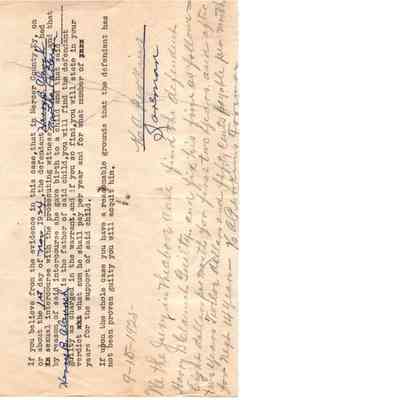 If you believe from the evidence in this case, that in Mercer County, Ky. on
or about the 1st day of Nov 1924, the defendant Henry B. had
in sexual intercourse with the prosecuting witness and that
by reason of said intercourse she gave birth to a child and that said
Henry B. is the father of said child, you will find the defendant
guilty as charged in the warrant, and if you so find, you will state in your
verdict what sum he shall pay per year and for what number of
years for the support of said child.
If upon the whole case you have a reasonable grounds that the defendant has
not been proven guilty you will acquit him.
Foreman
9-18-1925
We the Jury in the above case find the defendant
Henry Guilty and fix his fine as follows
Eight dollars per month for first two years and after
two years dollars and fifty cts payable per month
for next Foreman